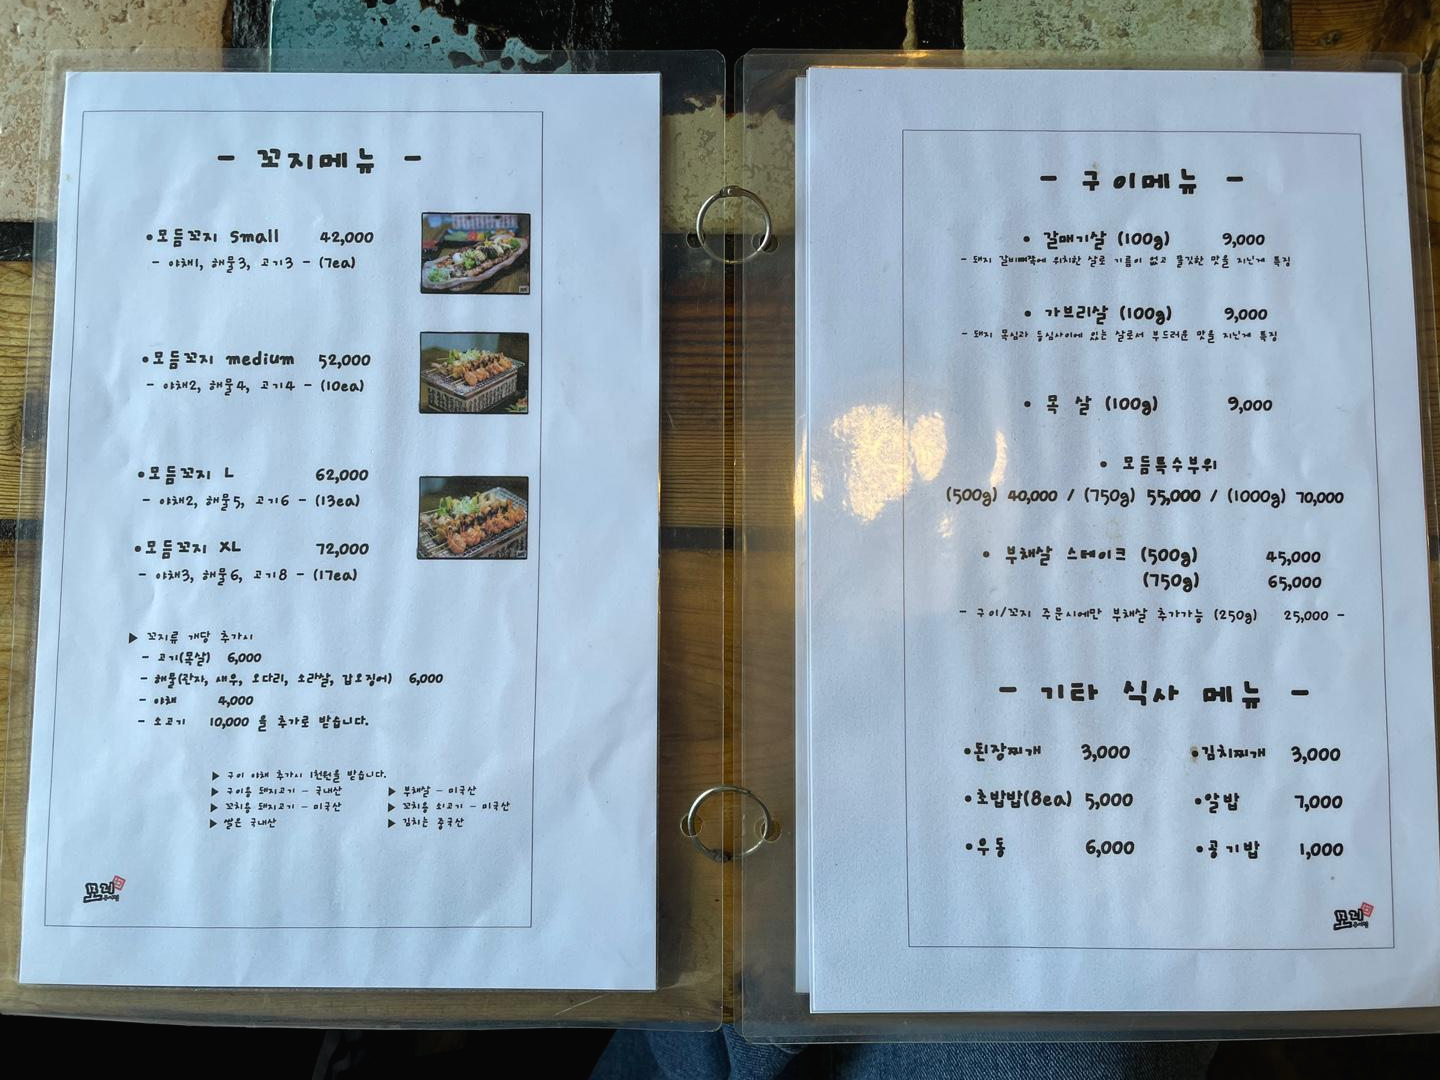 - 꼬지메뉴 -
•모듬꼬지 small 42,000
- 야채1, 해물3, 고기3 - (7ea)
•모듬꼬지 medium 52,000
- 야채2, 해물4, 고기4 - (10ea)
•모듬꼬지 L 62,000
- 야채2, 해물5, 고기6 - (13ea)
•모듬꼬지 XL 72,000
- 야채3, 해물6, 고기8 - (17ea)
▶ 꼬지류 개당 추가시
- 고기(목살) 6,000
- 해물(관자, 새우, 오다리, 소라살, 갑오징어) 6,000
- 야채 4,000
- 소고기 10,000 을 추가로 받습니다.
▶ 구이 야채 추가시 1천원을 받습니다.
▶ 구이용 돼지고기 - 국내산 ▶ 부채살 - 미국산
▶ 꼬치용 돼지고기 - 미국산 ▶ 꼬치용 쇠고기 - 미국산
▶ 쌀은 국내산 ▶ 김치는 중국산
꼬리
- 구이메뉴 -
• 갈매기살 (100g) 9,000
- 돼지 갈비뼈쪽에 위치한 살로 기름이 없고 쫄깃한 맛을 지닌게 특징
• 가브리살 (100g) 9,000
- 돼지 목심과 등심사이에 있는 살로서 부드러운 맛을 지닌게 특징
• 목 살 (100g) 9,000
• 모듬특수부위
(500g) 40,000 / (750g) 55,000 / (1000g) 70,000
• 부채살 스테이크 (500g) 45,000
(750g) 65,000
- 구이/꼬지 주문시에만 부채살 추가가능 (250g) 25,000 -
- 기타 식사 메뉴 -
•된장찌개 3,000 •김치찌개 3,000
•초밥밥(8ea) 5,000 •알밥 7,000
•우동 6,000 •공기밥 1,000
꼬리